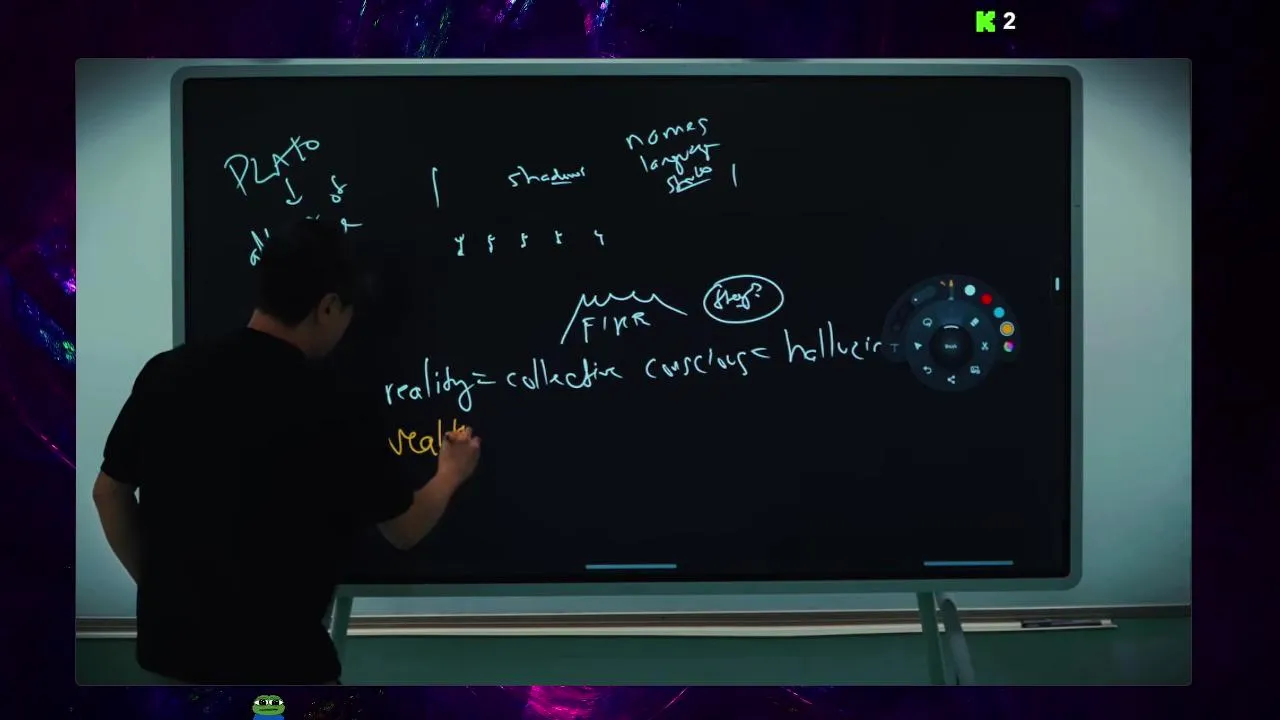 K 2
PLATO
of
shadows
names
language
FIRE
reality = collective conscious = hallucin
realit